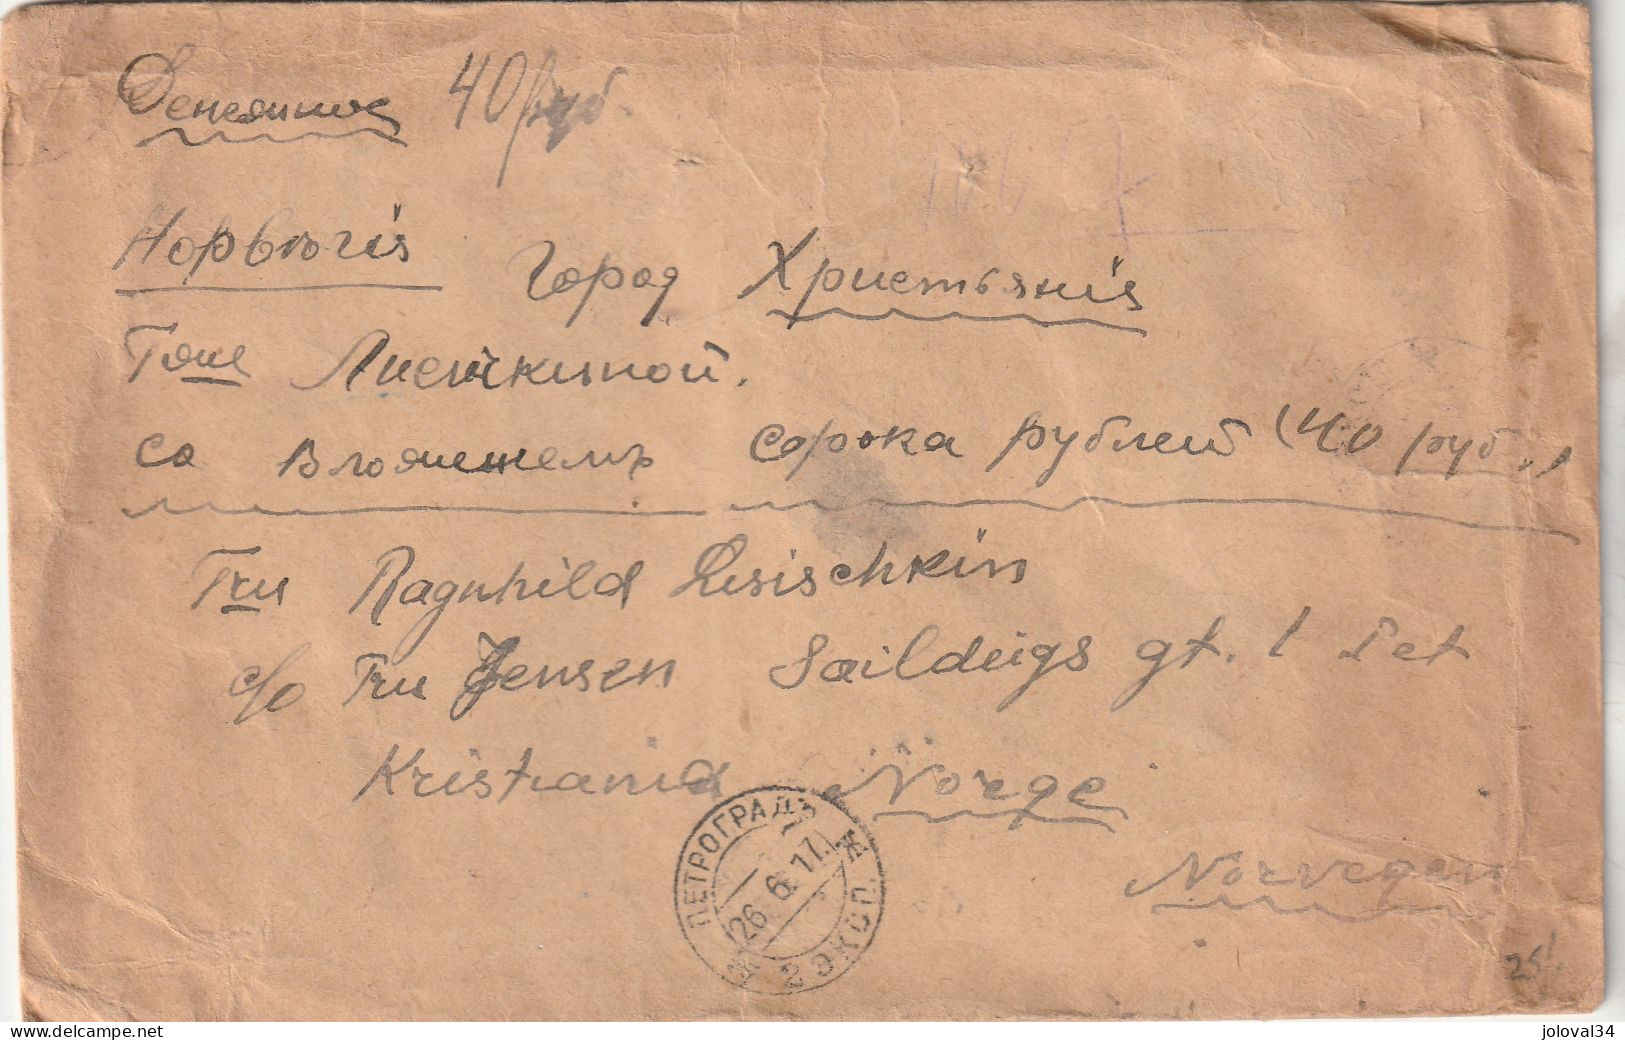 Денежное 40 руб.
Норвегiя Город Христьянiя
Г-же Лисичкиной.
со вложенiемъ сорока рублей (40 руб.)
Fru Ragnhild Lisischkin
c/o Fru Jensen gt. 1
Kristiania Norge
Norvegen
ПЕТРОГРАДЪ
26 6 17
2 ЭКСП.
25
joloval34